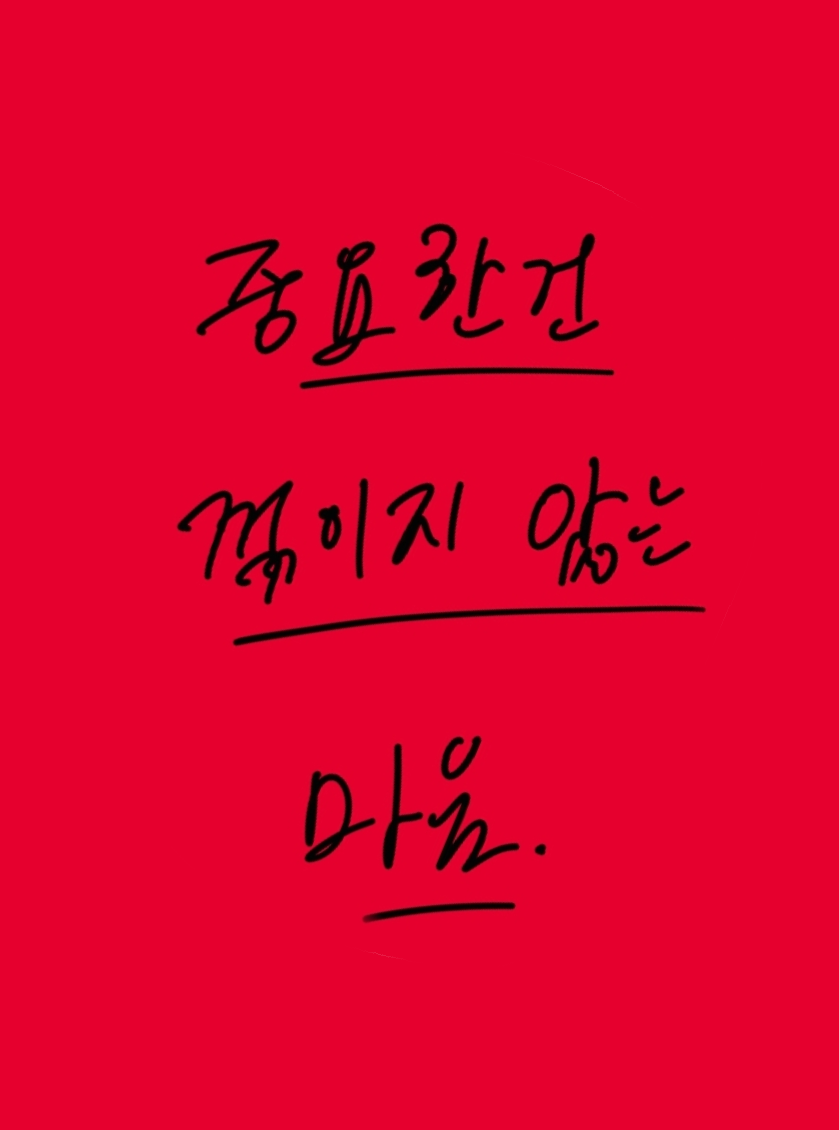 중요한건
꺾이지 않는
마음.